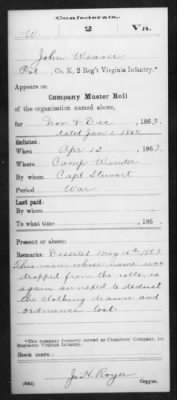 Confederate.
W 2 Va.
John Weaver
Pvt, Co. K, 2 Reg't Virginia Infantry.*
Appears on
Company Muster Roll
of the organization named above,
for Nov & Dec, 1863.
dated Jan 1 1864
Enlisted:
When Apr 13, 1863.
Where Camp Winder
By whom Capt Stewart
Period War
Last paid:
By whom
To what time , 186 .
Present or absent:
Remarks: Deserted May 16th 1863
This man whose name was
dropped from the rolls, is
again entered to deduct
the clothing drawn and
ordnance lost.
Book mark:
(642) J. H. Royer
Copyist.